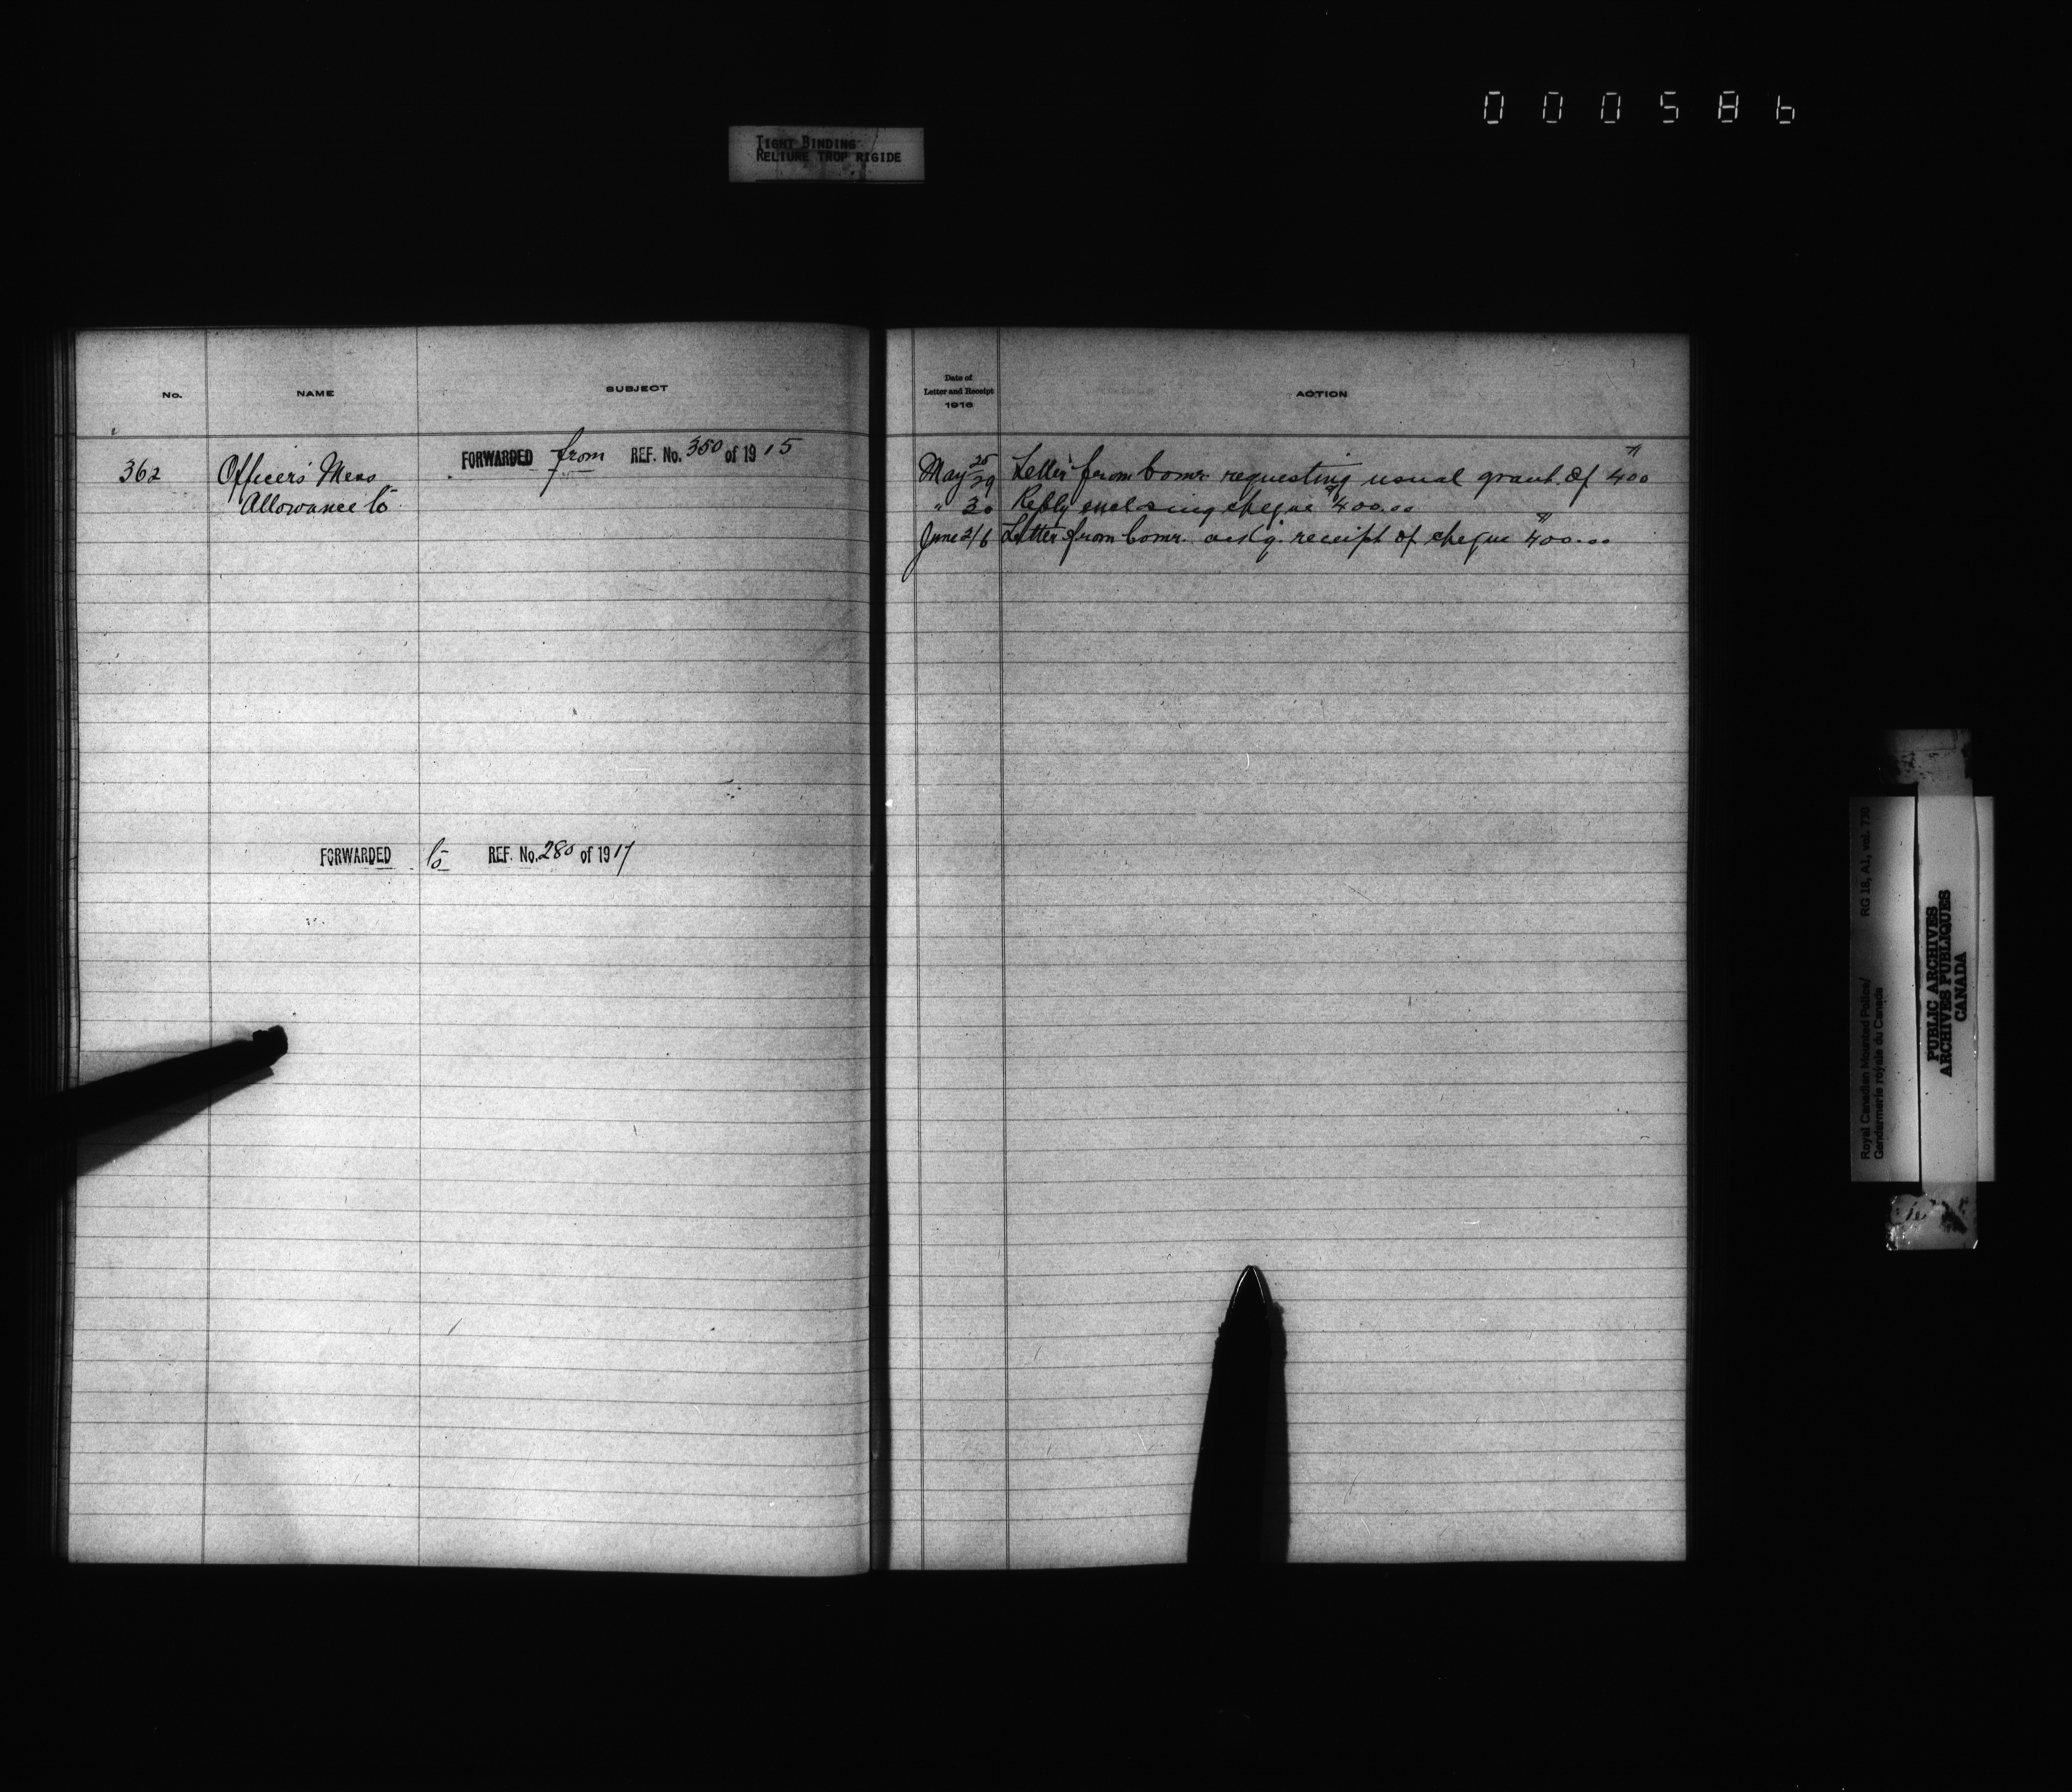 000586
TIGHT BINDING
RELIURE TROP RIGIDE
No. NAME SUBJECT
362 Officers' Mess FORWARDED from REF. No. 350 of 1915
Allowance to
FORWARDED to REF. No. 280 of 1917
Date of
Letter and Receipt
1916
ACTION
May 25/29 Letter from Comr. requesting usual grant of $400
" 30 Reply enclosing cheque $400.00
June 2/6 Letter from Comr. ack'g. receipt of cheque $400.00
Royal Canadian Mounted Police/ RG 18, A1, vol. 730
Gendarmerie royale du Canada
PUBLIC ARCHIVES
ARCHIVES PUBLIQUES
CANADA